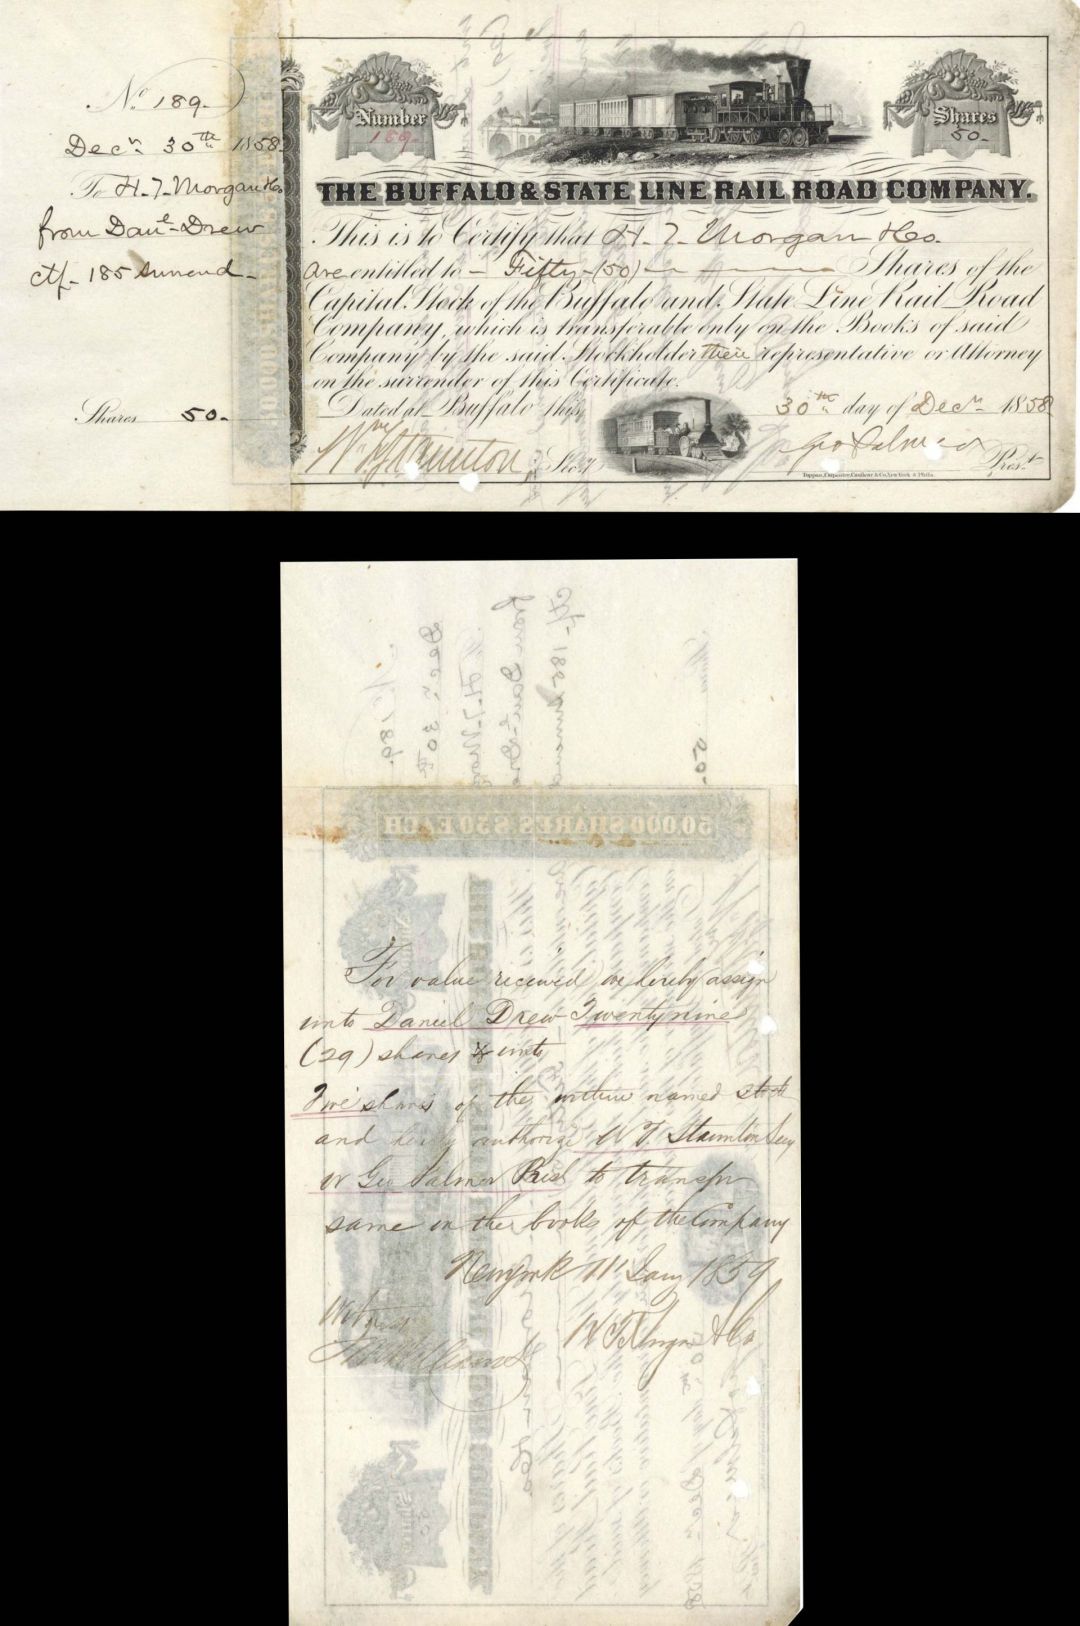 No 189.
Decr 30th 1858
To H. T. Morgan & Co
from Danl Drew
ctf. 185 surrend.
Shares 50.
Number
189.
Shares
50.
THE BUFFALO & STATE LINE RAIL ROAD COMPANY.
This is to Certify that H. T. Morgan & Co.
are entitled to Fifty (50) Shares of the
Capital Stock of the Buffalo and State Line Rail Road
Company, which is transferable only on the Books of said
Company by the said Stockholder their representative or Attorney
on the surrender of this Certificate.
Dated at Buffalo this 30th day of Decr 1858
Secy Geo Palmer Prest
Toppan, Carpenter, Casilear & Co. New York & Phila.
50,000 SHARES $50 EACH
For value received we hereby assign
unto Daniel Drew Twenty nine
(29) shares & unto
shares of the within named stock
and hereby authorize W T. Staunton Secy
or Geo Palmer Prest to transfer
same on the books of the Company
New york 11 Jany 1859
Witness
H T Morgan & Co